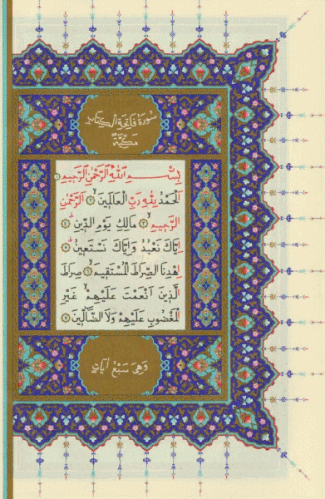 سورة فاتحة الكتاب
مكية
بسم الله الرحمن الرحيم ١
الحمد لله رب العالمين ٢ الرحمن
الرحيم ٣ مالك يوم الدين ٤
اياك نعبد واياك نستعين ٥
اهدنا الصراط المستقيم ٦ صراط
الذين انعمت عليهم غير
المغضوب عليهم ولا الضالين ٧
وهى سبع ايات